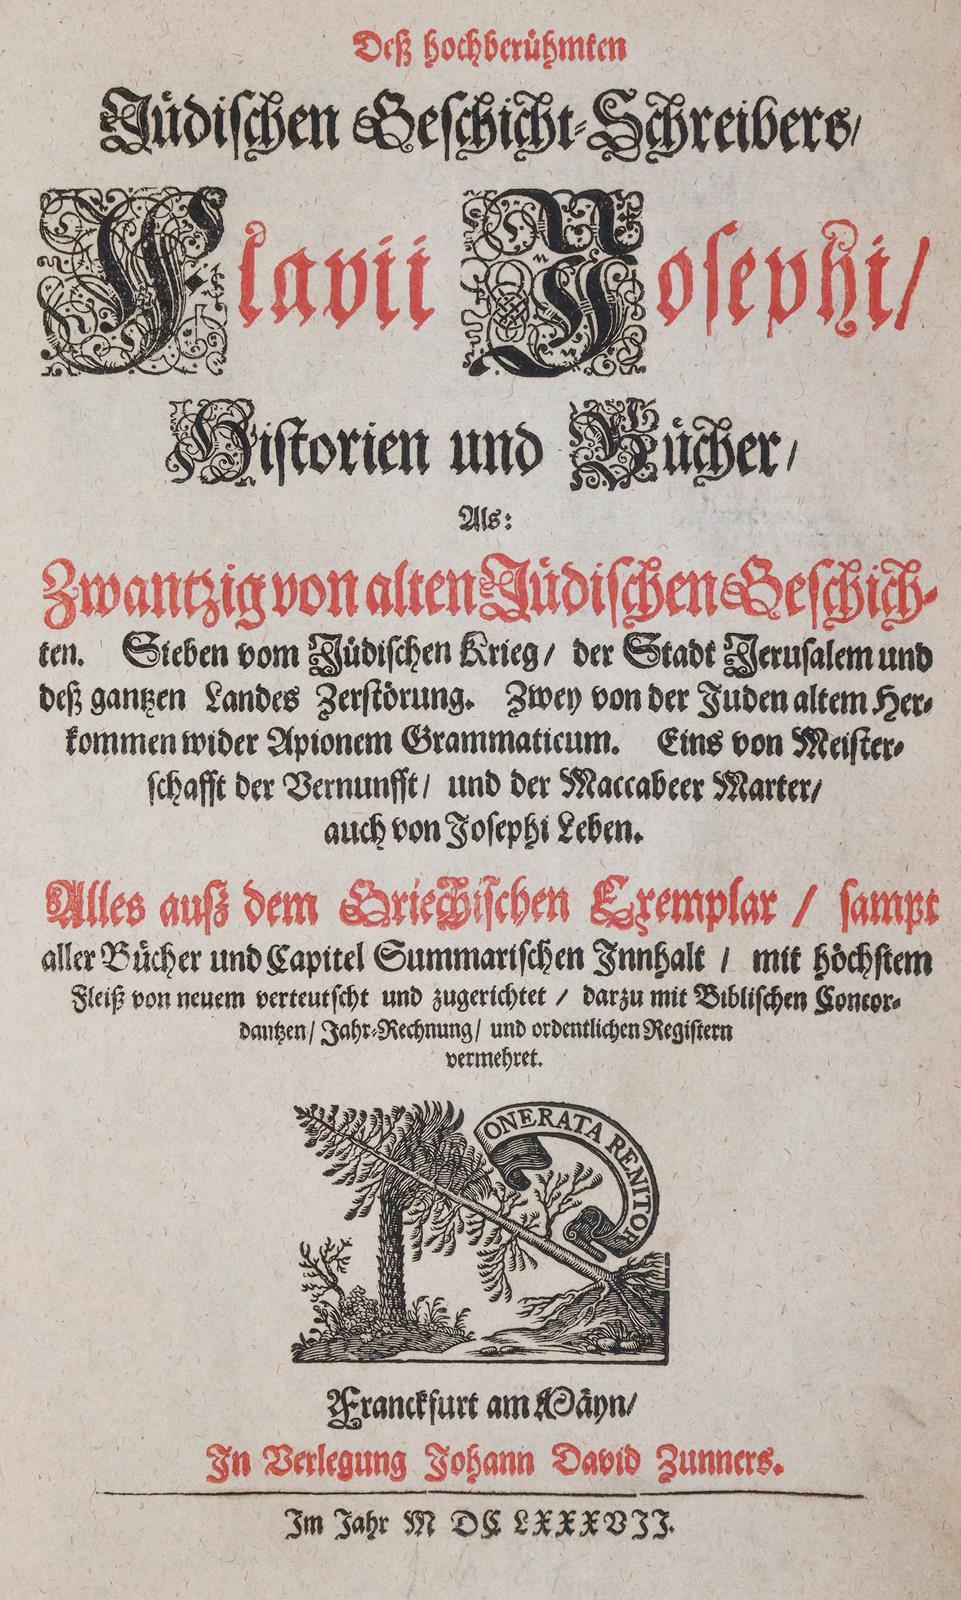 Deß hochberühmten
Jüdischen Geschicht-Schreibers/
Flavii Josephi/
Historien und Bücher/
Als:
Zwantzig von alten Jüdischen Geschich-
ten. Sieben vom Jüdischen Krieg/ der Stadt Jerusalem und
deß gantzen Landes Zerstörung. Zwey von der Juden altem Her-
kommen wider Apionem Grammaticum. Eins von Meister-
schafft der Vernunfft/ und der Maccabeer Marter/
auch von Josephi Leben.
Alles auß dem Griechischen Exemplar / sampt
aller Bücher und Capitel Summarischen Innhalt / mit höchstem
Fleiß von neuem verteutscht und zugerichtet / darzu mit Biblischen Concor-
dantzen/ Jahr-Rechnung/ und ordentlichen Registern
vermehret.
ONERATA RENITOR
Franckfurt am Mäyn/
In Verlegung Johann David Zunners.
Im Jahr M DC LXXXVII.